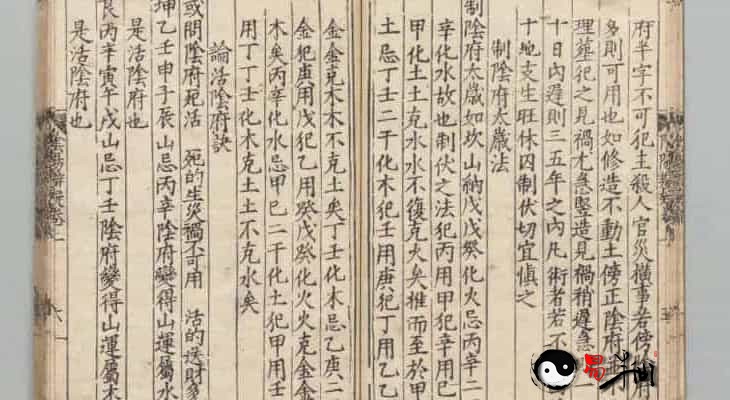 府半字不可犯主殺人官災橫事若傍
多則可用也如修造不動土傍正陰府
理葬犯之見禍尤急竪造見禍稍遲急
十日內遲則三五年之內凡術者若不
十地支生旺休囚制伏切宜慎之
制陰府太歲法
制陰府太歲如坎山納戊戊癸化火忌丙辛二
辛化水故也制伏之法犯丙用甲犯辛用巳
甲化土土克水水不復克火矣推而至於甲
土忌丁壬二干化木犯壬用庚犯丁用乙乙
金金克木木不克土矣丁壬化木忌乙庚二
金犯庚用戊犯乙用癸戊癸化火火克金金
木矣丙辛化水忌甲巳二干化土犯甲用壬
用丁丁壬化木克土土不克水矣
論活陰府訣
或問陰府死活 死的生災禍不可用 活的送財多
坤乙壬申子辰山忌丙辛陰府變得山運屬水
是活陰府也
艮丙辛寅午戌山忌丁壬陰府變得山運屬木
是活陰府也